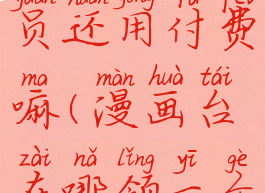 yuán hái yòng fù fèi
员还用付费
ma màn huà tái
嘛(漫画台
zài nǎ lǐng yī gè
在哪领一个